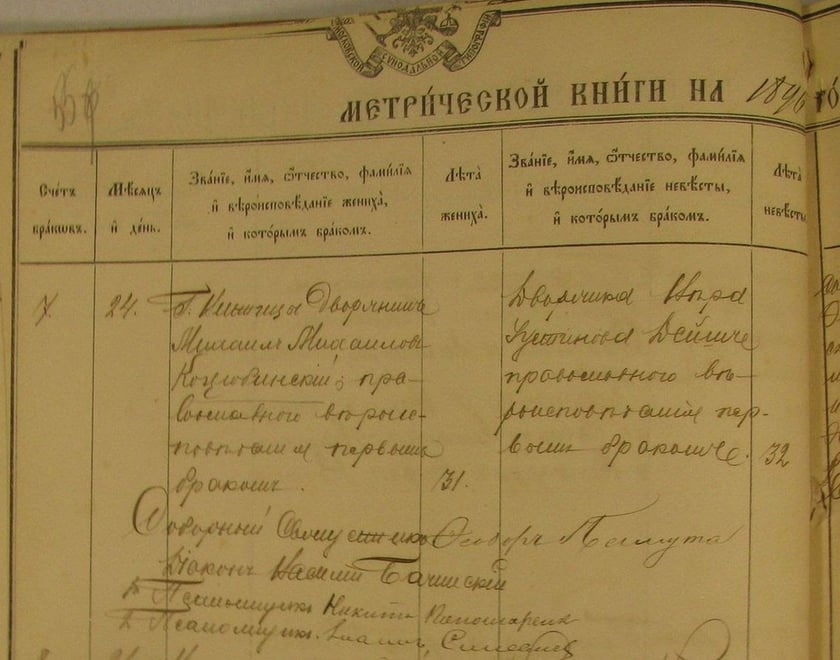 МОСКОВСКОЙ СѴНОДАЛЬНОЙ ТИПОГРАФІИ
МЕТРИ́ЧЕСКОЙ КНИ́ГИ НА 1896 го́
Сче́тъ бра́ковъ.
Мѣ́сяцъ и҆ де́нь.
Зва́ніе, и҆́мя, ѻ҆́тчество, фами́лія и҆ вѣроисповѣ́даніе жениха̀, и҆ кото́рымъ бра́комъ.
Лѣта̀ жениха̀.
Зва́ніе, и҆́мя, ѻ҆́тчество, фами́лія и҆ вѣроисповѣ́даніе невѣ́сты, и҆ кото́рымъ бра́комъ.
Лѣта̀ невѣ́сты
7
24.
Г. Винницы Дворянинъ
Михаилъ Михаиловъ
Коцюбинскій, пра-
вославного вѣроис-
повѣданія первымъ
бракомъ.
31.
Дворянка Вѣра
Устинова Дейша
православного вѣ-
роисповѣданія пер-
вымъ бракомъ.
32
Соборный Священникъ Феодоръ
Діаконъ Василій
Псаломщикъ Никита Пономаренко
Псаломщикъ